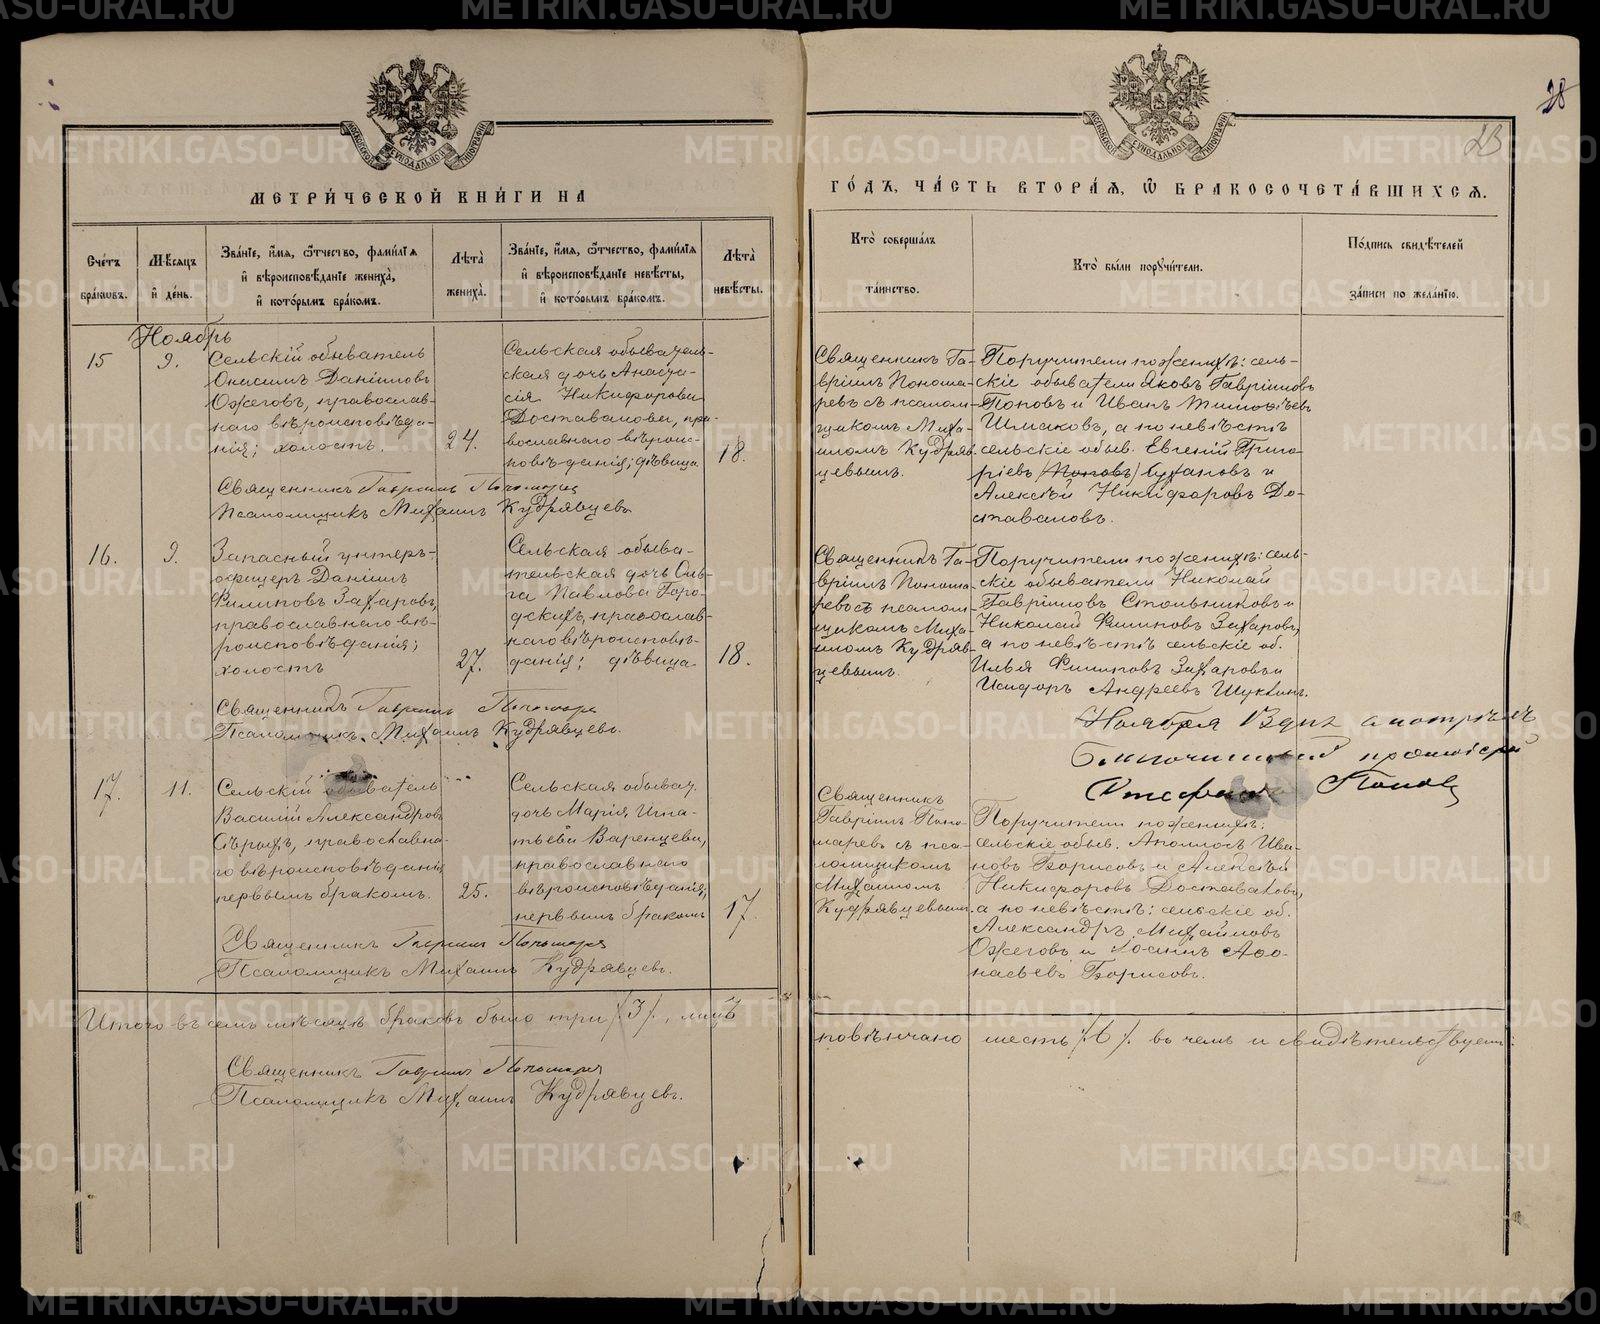 METRIKI.GASO-URAL.RU
28
23
МОСКОВСКОЙ СѴНОДАЛЬНОЙ ТИПОГРАФІИ
МОСКОВСКОЙ СѴНОДАЛЬНОЙ ТИПОГРАФІИ
МЕТРИ́ЧЕСКОЙ КНИ́ГИ НА
ГО́ДЪ, ЧА́СТЬ ВТОРА́Ѧ, Ѽ БРАКОСОЧЕТА́ВШИХСѦ.
Сче́тъ бра́кѡвъ.
Мѣ́сѧцъ и҆ де́нь.
Зва́нїе, и҆́мѧ, ѻ҆́тчество, фами́лїѧ
и҆ вѣроисповѣ́данїе жениха̀,
и҆ кото́рымъ бра́комъ.
Лѣ́та жениха̀.
Зва́нїе, и҆́мѧ, ѻ҆́тчество, фами́лїѧ
и҆ вѣроисповѣ́данїе невѣ́сты,
и҆ кото́рымъ бра́комъ.
Лѣ́та невѣ́сты.
Кто̀ соверша́лъ
та́инство.
Кто̀ бы́ли порꙋчи́тели.
По́дпись свидѣ́телей
за́писи по жела́нїю.
Ноябрь
15
9.
Сельскій обыватель
Онисимъ Даніиловъ
Ожеговъ, православ-
наго вѣроисповѣда-
нія; холостъ.
24.
Сельская обыватель-
ская дочь Анаста-
сія Никифорова
Доставалова, пра-
вославнаго вѣроис-
повѣданія; дѣвица
18.
Священникъ Га-
вріилъ Понома-
ревъ съ псалом-
щикомъ Миха-
иломъ Кудряв-
цевымъ.
Поручители по женихѣ: сель-
скіе обыватели Яковъ Гавріиловъ
Поповъ и Иванъ Тимофѣевъ
Шмаковъ, а по невѣстѣ
сельскіе обыв. Евгеній Григо-
ріевъ /Поповъ/ и
Алексѣй Никифоровъ До-
ставаловъ.
Священникъ Гавріилъ Пономарев
Псаломщикъ Михаилъ Кудрявцевъ
16.
9.
Запасный унтеръ-
офицеръ Даніилъ
Филиповъ Захаровъ,
православнаго вѣ-
роисповѣданія;
холостъ
27.
Сельская обыва-
тельская дочь Оль-
га Павлова Горо-
дскихъ, православ-
наго вѣроисповѣ-
данія; дѣвица
18.
Священникъ Га-
вріилъ Понома-
ревъ съ псалом-
щикомъ Миха-
иломъ Кудряв-
цевымъ.
Поручители по женихѣ: сель-
скіе обыватели Николай
Гавріиловъ Стольниковъ и
Николай Филиповъ Захаровъ,
а по невѣстѣ сельскіе об.
Илья Филиповъ Захаровъ и
Исидоръ Андреевъ Шуклинъ.
Священникъ Гавріилъ Пономарев
Псаломщикъ Михаилъ Кудрявцевъ.
Ноября 13 дня смотрѣлъ
Благочинный протоіерей
Стефанъ Поповъ
17.
11.
Сельскій обыватель
Василій Александровъ
Сѣрыхъ, православна-
го вѣроисповѣданія
первымъ бракомъ.
25.
Сельская обыват.
дочь Марія Игна-
тьева Варенцева,
православнаго
вѣроисповѣданія;
первымъ бракомъ
17.
Священникъ
Гавріилъ Поно-
маревъ съ пса-
ломщикомъ
Михаиломъ
Кудрявцевымъ.
Поручители по женихѣ:
сельскіе обыв. Аполлосъ Ива-
новъ Борисовъ и Алексѣй
Никифоровъ Доставаловъ,
а по невѣстѣ: сельскіе об.
Александръ Михайловъ
Ожеговъ и Іоаннъ Аѳо-
насьевъ Борисовъ.
Священникъ Гавріилъ Пономарев
Псаломщикъ Михаилъ Кудрявцевъ.
Итого въ семъ мѣсяцѣ браковъ было три /3/, лицъ повѣнчано шесть /6/. въ чемъ и свидѣтельствуемъ:
Священникъ Гавріилъ Пономарев
Псаломщикъ Михаилъ Кудрявцевъ.